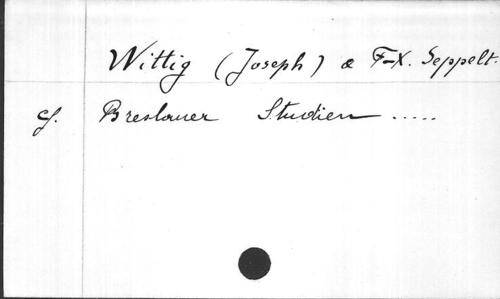 Wittig (Joseph) & F-X. Seppelt.
cf. Breslauer Studien .....